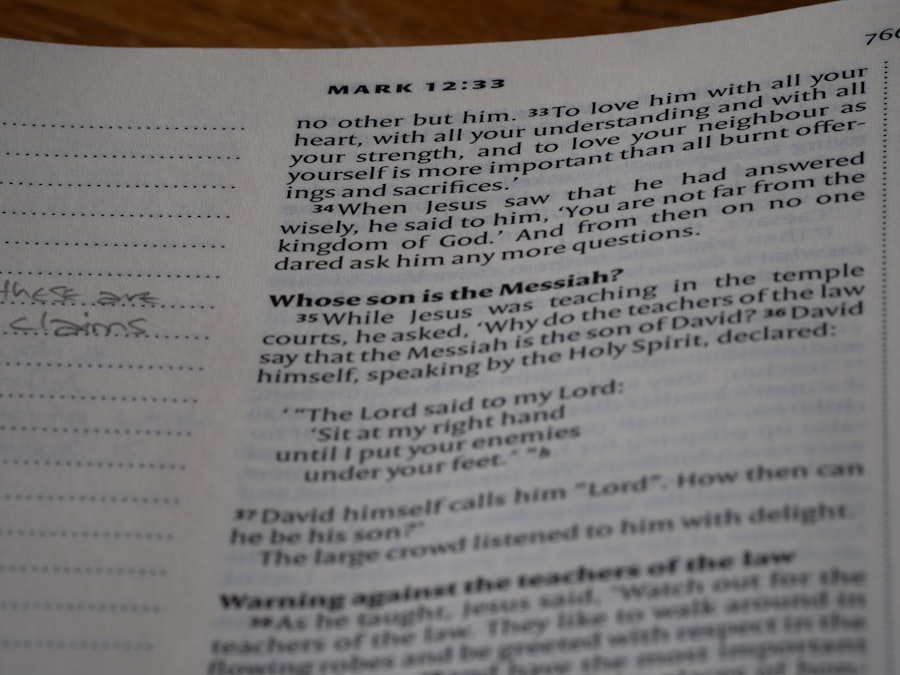 MARK 12:33
760
no other but him. 33To love him with all your
heart, with all your understanding and with all
your strength, and to love your neighbour as
yourself is more important than all burnt offer-
ings and sacrifices.’
34When Jesus saw that he had answered
wisely, he said to him, ‘You are not far from the
kingdom of God.’ And from then on no one
dared ask him any more questions.
Whose son is the Messiah?
35While Jesus was teaching in the temple
courts, he asked, ‘Why do the teachers of the law
say that the Messiah is the son of David? 36David
himself, speaking by the Holy Spirit, declared:
‘ “The Lord said to my Lord:
‘Sit at my right hand
until I put your enemies
under your feet.’ ”h
37David himself calls him “Lord”. How then can
he be his son?’
The large crowd listened to him with delight.
Warning against the teachers of the law
38As he taught, Jesus said, ‘Watch out for the
teachers of the law. They like to walk around in
flowing robes and be greeted with respect in the
have the most important
these are
claims